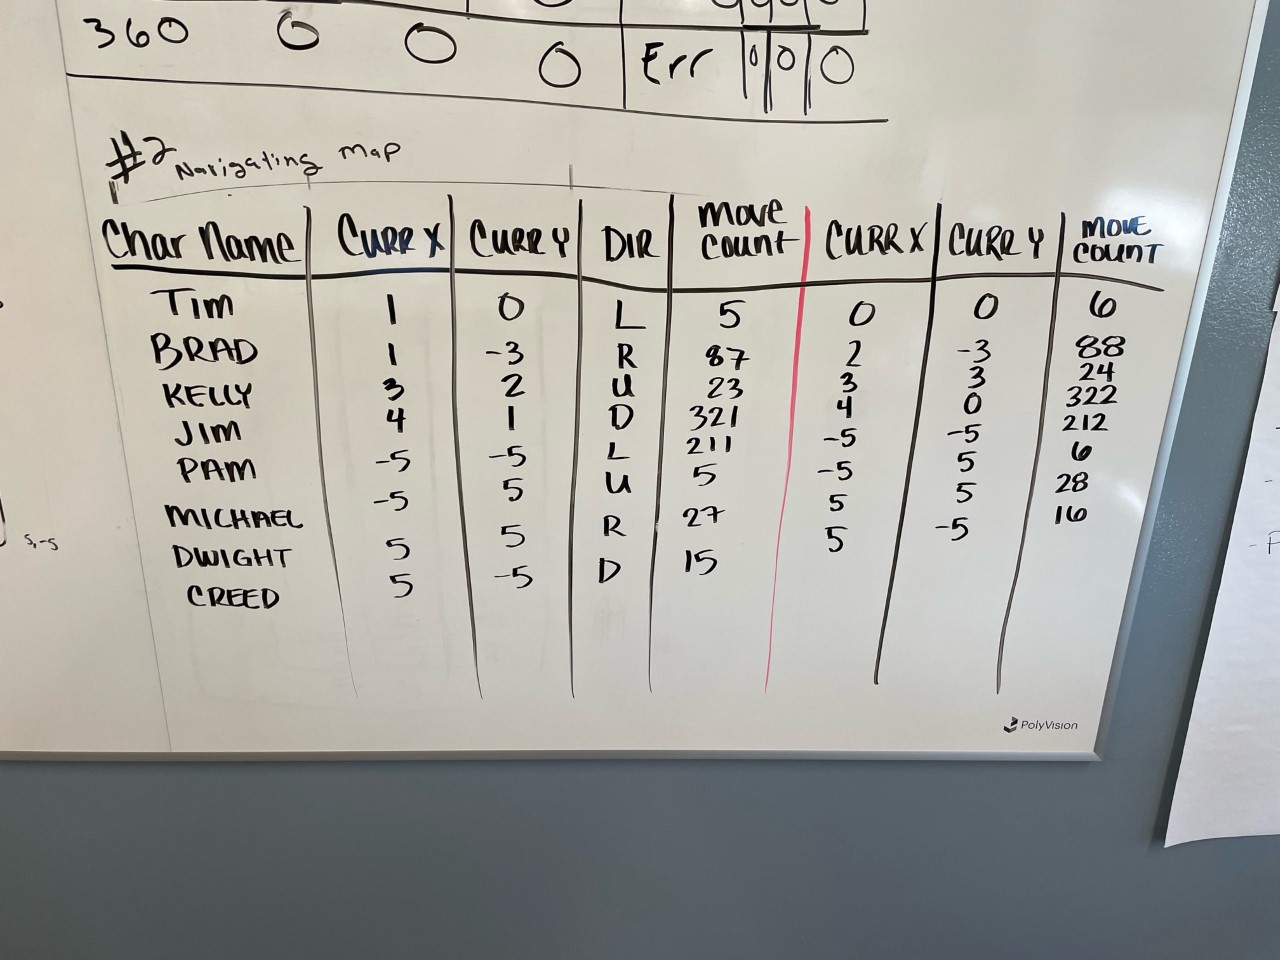 360 0 0 0 Err 0 0 0
#2 Navigating Map
Char Name CURR X CURR Y DIR Move Count CURR X CURR Y MOVE COUNT
Tim 1 0 L 5 0 0 6
BRAD 1 -3 R 87 2 -3 88
KELLY 3 2 U 23 3 3 24
JIM 4 1 D 321 4 0 322
PAM -5 -5 L 211 -5 -5 212
MICHAEL -5 5 U 5 -5 5 6
DWIGHT 5 5 R 27 5 5 28
CREED 5 -5 D 15 5 -5 16
5,-5
PolyVision